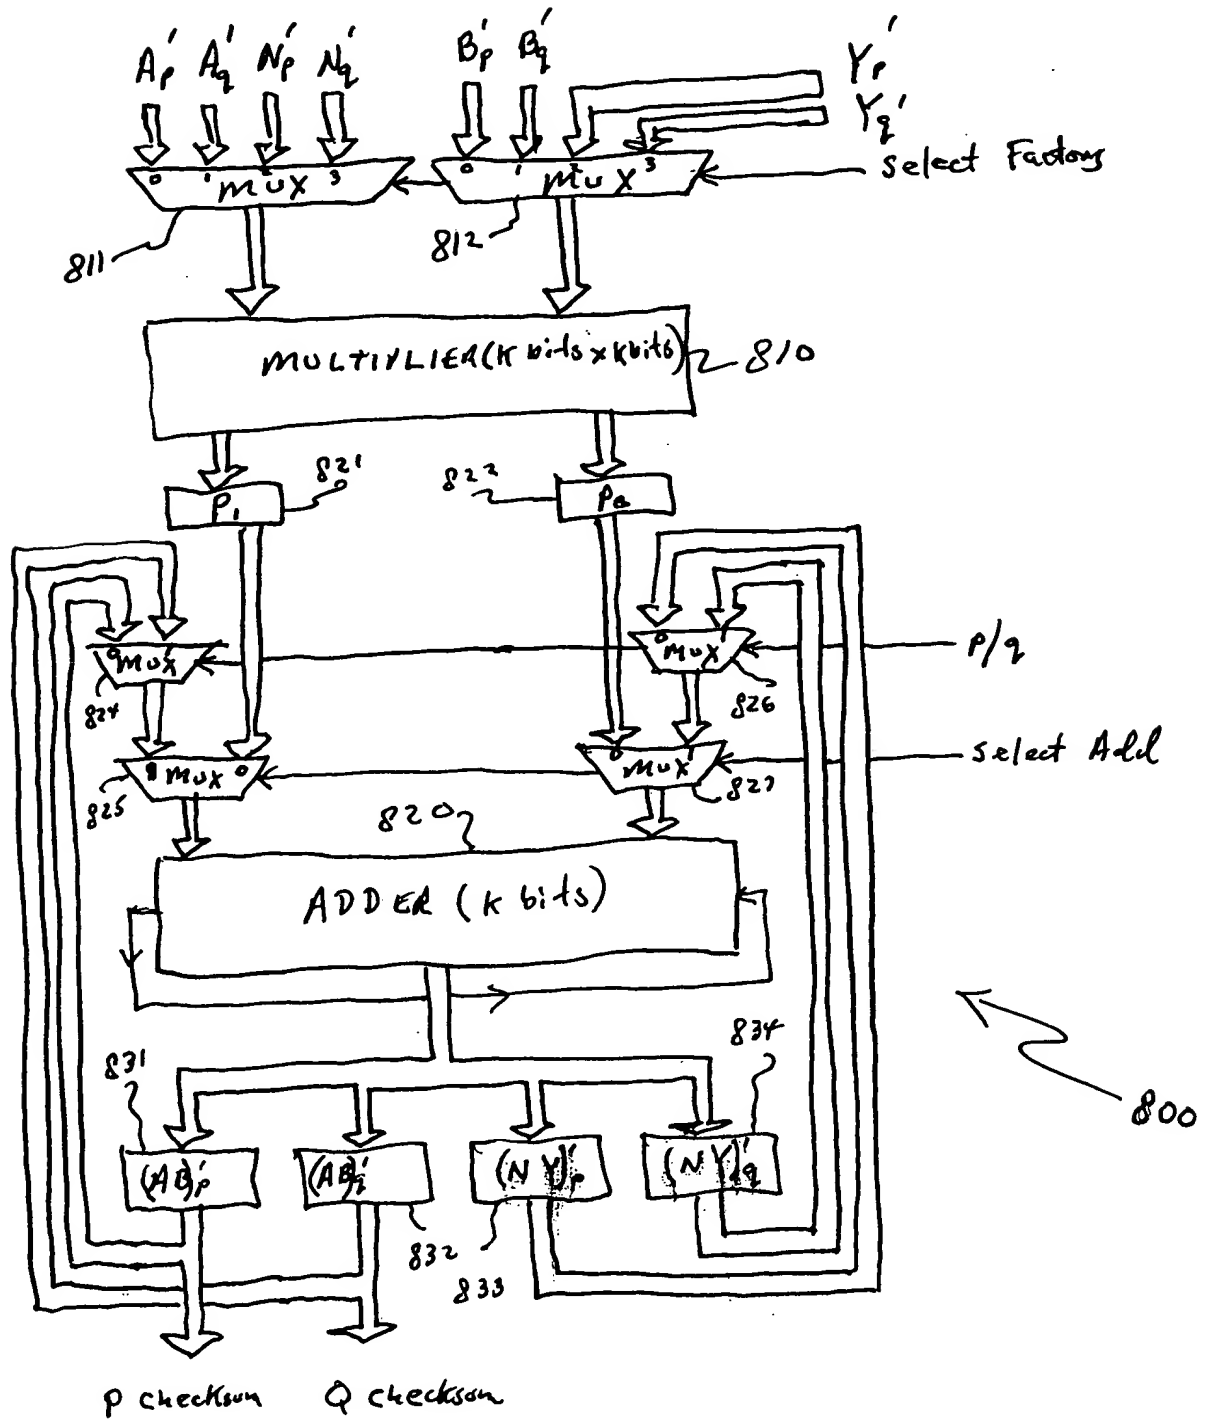 A'p A'q N'p N'q B'p B'q Y'p
Y'q
Select Factors
0 1 2 MUX 3
0 1 2 MUX 3
811
812
MULTIPLIER (K bits x K bits)
810
821
822
P1
P2
0 MUX 1
0 MUX 1
P/q
824
826
1 MUX 0
0 MUX 1
Select Add
825
827
820
ADDER (K bits)
831
834
800
(AB)'p
(AB)'q
(N Y)'p
(N Y)'q
832
833
P checksum
Q checksum